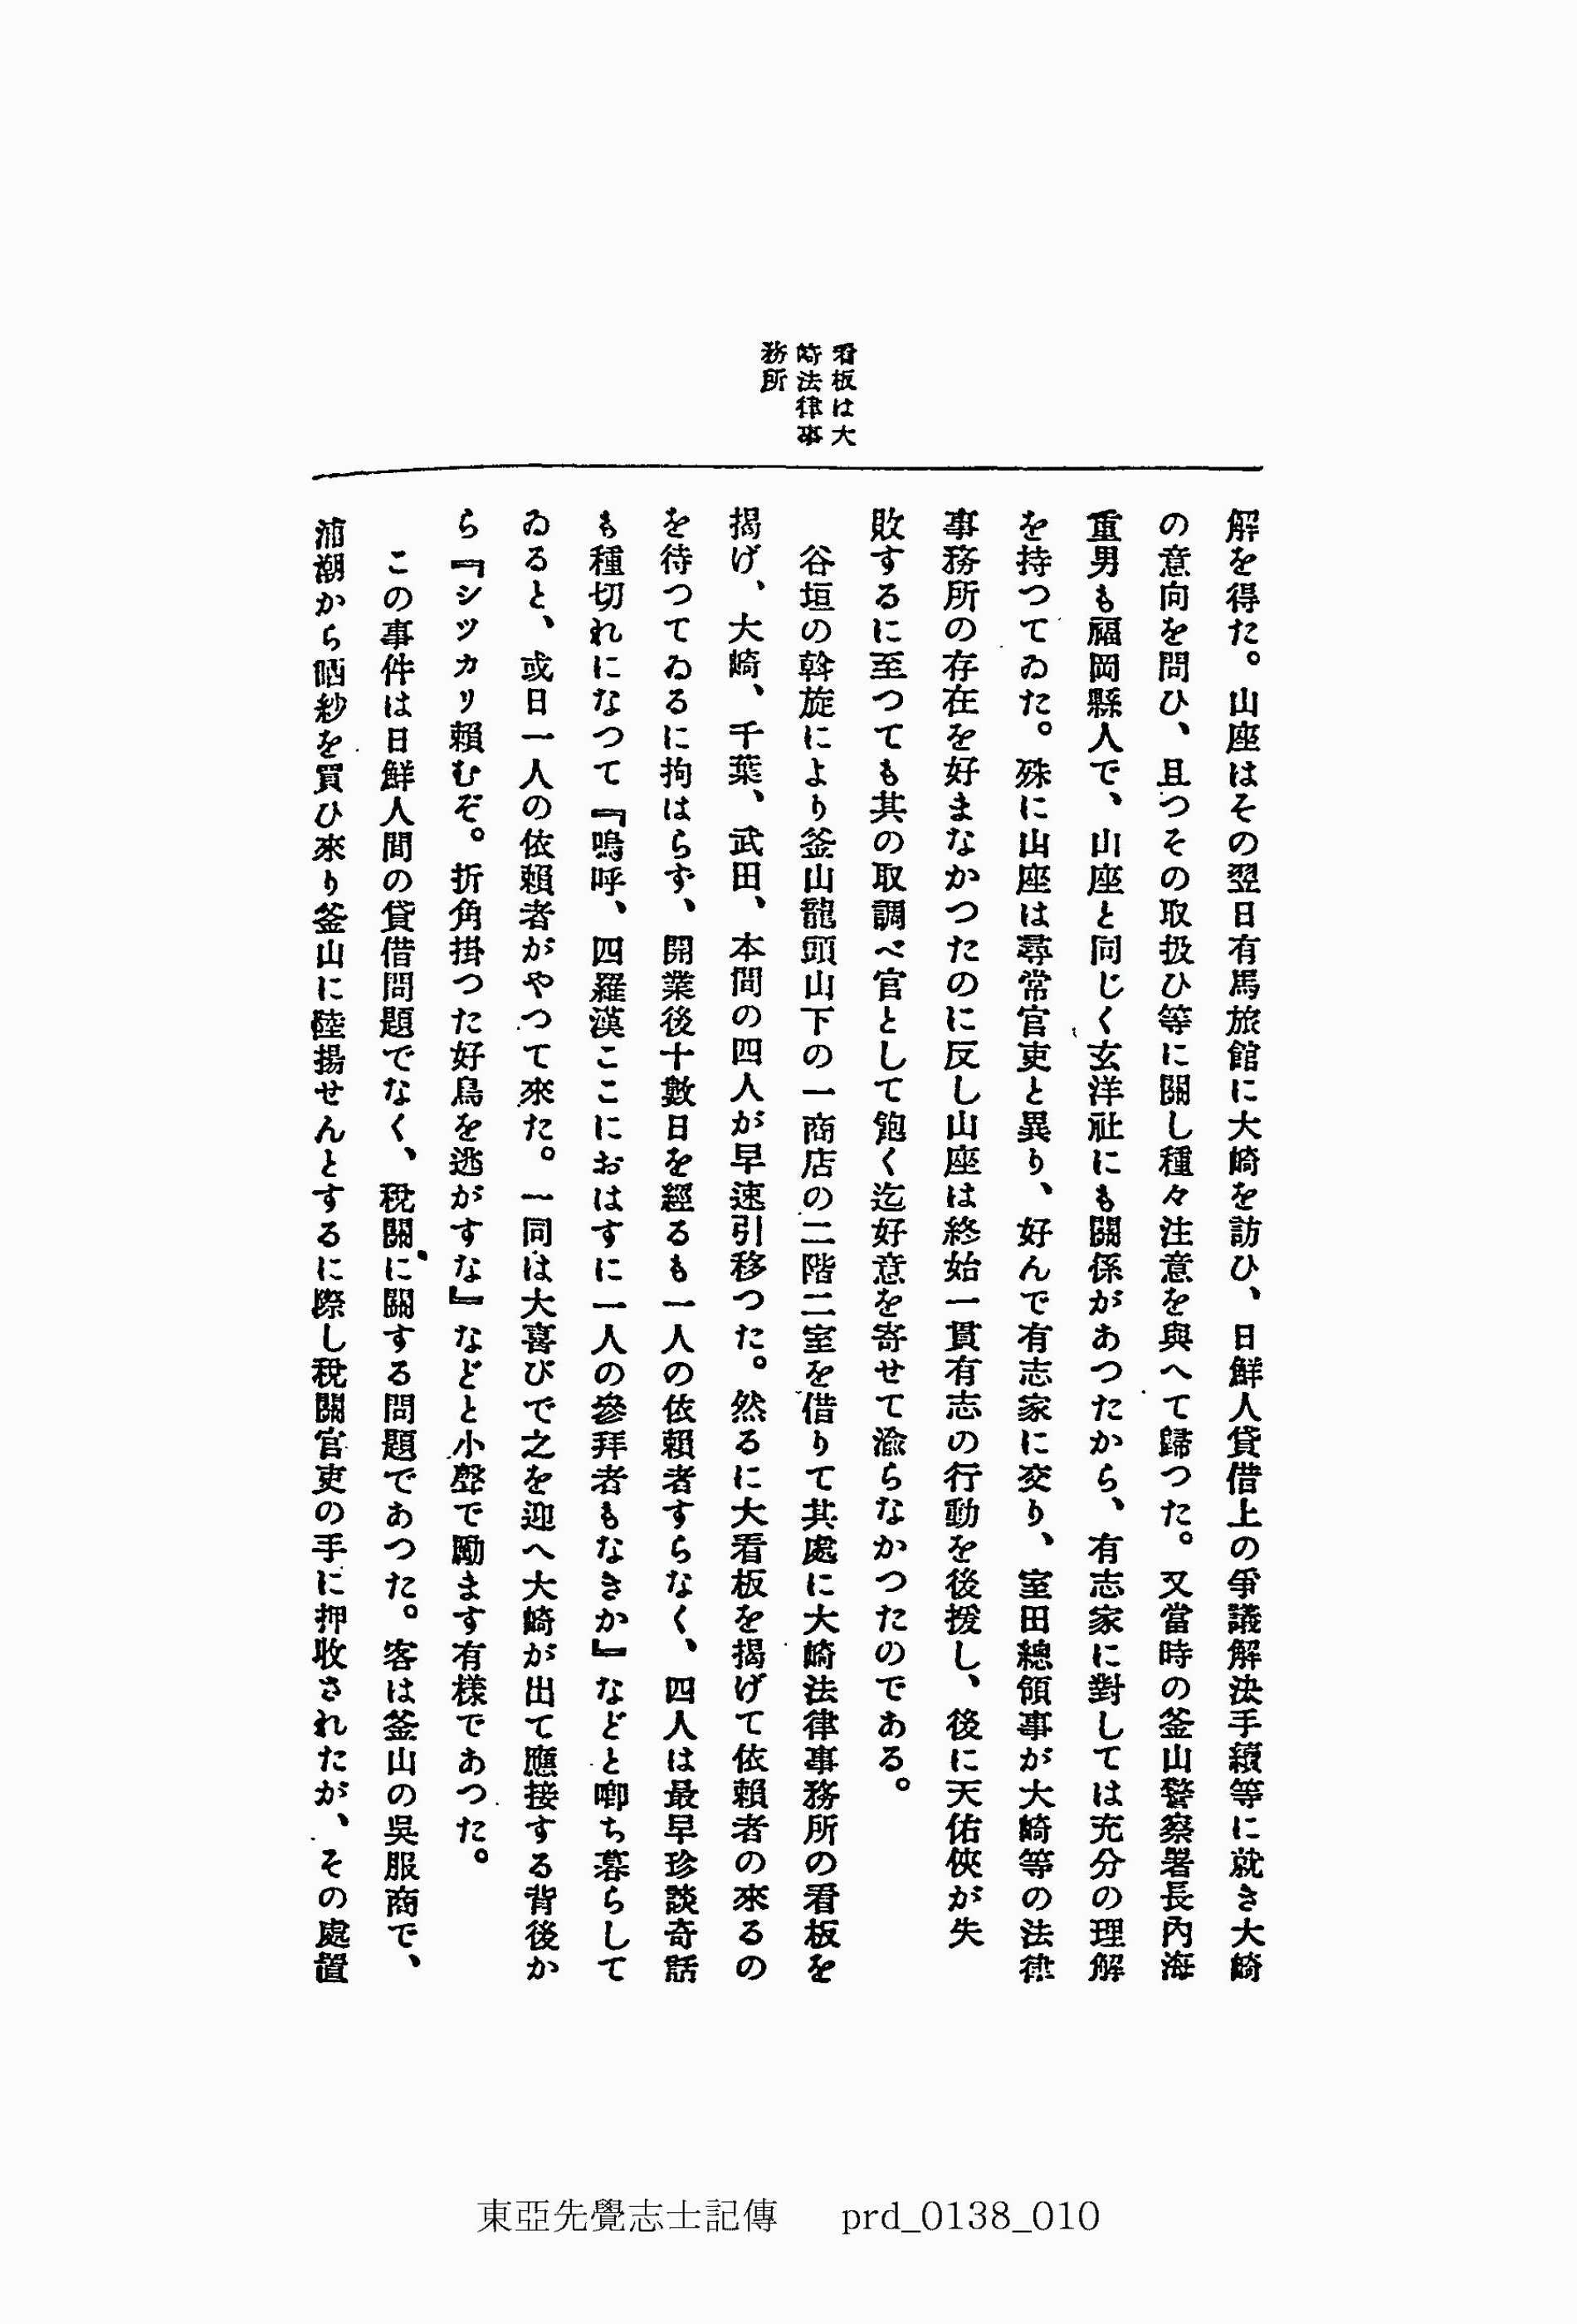 看板は大
崎法律事
務所
解を得た。山座はその翌日有馬旅館に大崎を訪ひ、日鮮人貸借上の爭議解決手續等に就き大崎
の意向を問ひ、且つその取扱ひ等に關し種々注意を與へて歸つた。又當時の釜山警察署長內海
重男も福岡縣人で、山座と同じく玄洋社にも關係があつたから、有志家に對しては充分の理解
を持つてゐた。殊に山座は尋常官吏と異り、好んで有志家に交り、室田總領事が大崎等の法律
事務所の存在を好まなかつたのに反し山座は終始一貫有志の行動を後援し、後に天佑俠が失
敗するに至つても其の取調べ官として飽く迄好意を寄せて渝らなかつたのである。
谷垣の斡旋により釜山龍頭山下の一商店の二階二室を借りて其處に大崎法律事務所の看板を
揭げ、大崎、千葉、武田、本間の四人が早速引移つた。然るに大看板を揭げて依賴者の來るの
を待つてゐるに拘はらず、開業後十數日を經るも一人の依賴者すらなく、四人は最早珍談奇話
も種切れになつて『嗚呼、四羅漢ここにおはすに一人の參拜者もなきか』などと啣ち暮らして
ゐると、或日一人の依賴者がやつて來た。一同は大喜びで之を迎へ大崎が出て應接する背後か
ら『シツカリ賴むぞ。折角掛つた好鳥を逃がすな』などと小聲で勵ます有樣であつた。
この事件は日鮮人間の貸借問題でなく、稅關に關する問題であつた。客は釜山の吳服商で、
浦潮から晒紗を買ひ來り釜山に陸揚せんとするに際し稅關官吏の手に押收されたが、その處置
東亞先覺志士記傳 prd_0138_010